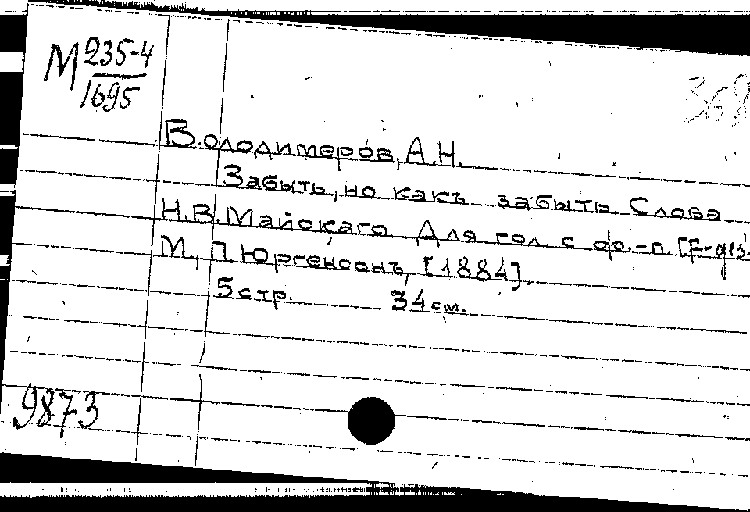 М 235-4
1695
368
Володимеров, А.Н.
Забыть, но какъ забыть Слова
Н.В. Майскаго Для гол. с фо.-п. [F-gis
М., П. Юргенсонъ, [1884].
5 стр. 34 см.
9873